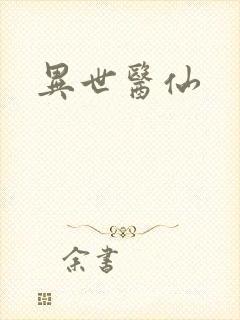 異世醫仙
余書